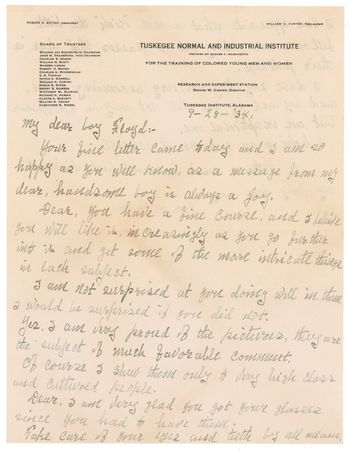 ROBERT R. MOTON, PRESIDENT
WILLIAM H. CARTER, TREASURER
BOARD OF TRUSTEES
TUSKEGEE NORMAL AND INDUSTRIAL INSTITUTE
FOUNDED BY BOOKER T. WASHINGTON
FOR THE TRAINING OF COLORED YOUNG MEN AND WOMEN
RESEARCH AND EXPERIMENT STATION
GEORGE W. CARVER, DIRECTOR
TUSKEGEE INSTITUTE, ALABAMA
9-28-34.
My dear boy Floyd:-
Your fine letter came today and I am so
happy as you will know, as a message from my
dear, handsome boy is always a joy.
Dear, you have a fine course, and I believe
you will like it, increasingly as you go further
into it and get some of the more intricate things
in each subject.
I am not surprised at you doing well in them
I would be surprised if you did not.
Yes, I am very proud of the pictures, they are
the subject of much favorable comment,
Of course I show them only to very high class
and cultured people.
Dear, I am very glad you got your glasses
since you had to have them.
Take care of your eyes and teeth by all means,